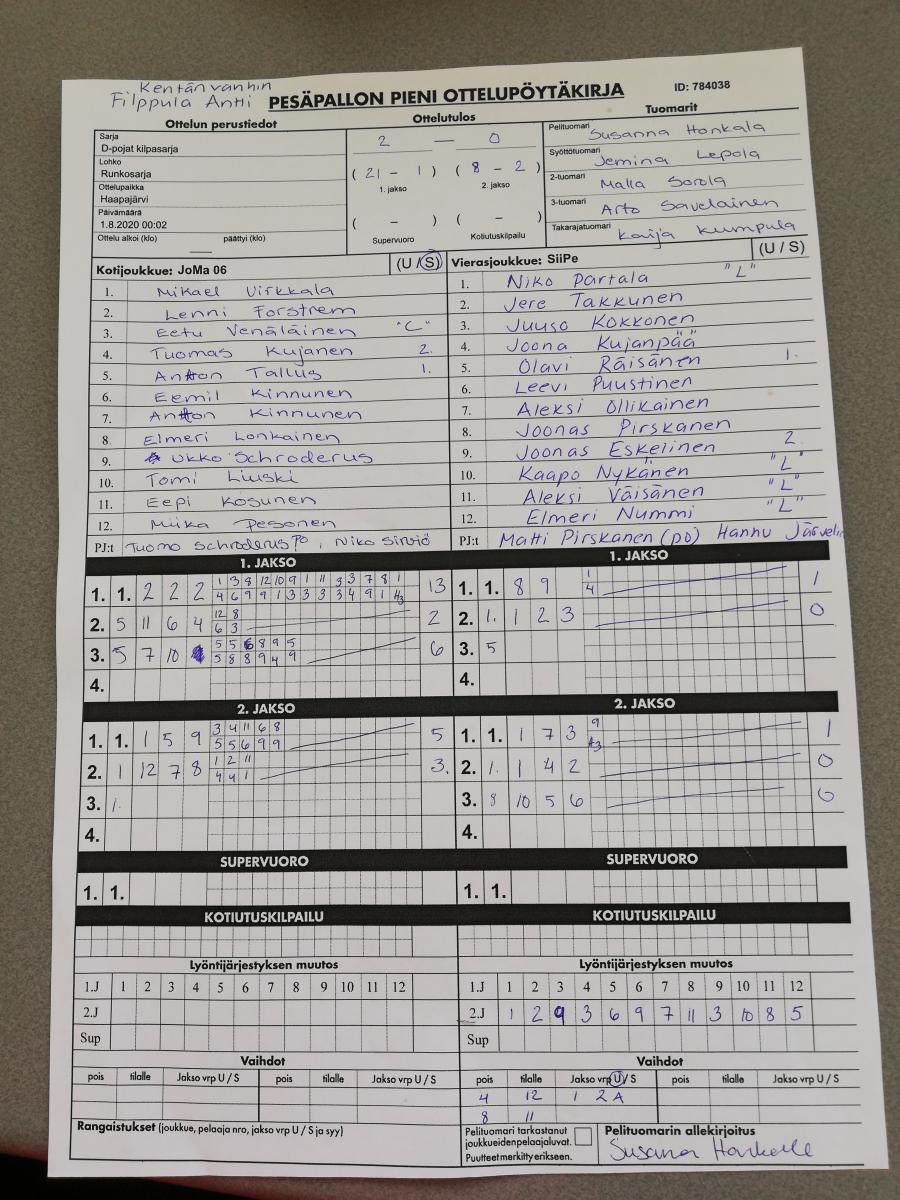 Kentänvanhin
Filppula Antti
PESÄPALLON PIENI OTTELUPÖYTÄKIRJA
ID: 784038
Ottelun perustiedot
Ottelutulos
Tuomarit
Sarja
D-pojat kilpasarja
Lohko
Runkosarja
Ottelupaikka
Haapajärvi
Päivämäärä
1.8.2020 00:02
Ottelu alkoi (klo) päättyi (klo)
2 — 0
( 21 - 1 ) ( 8 - 2 )
1. jakso 2. jakso
( - ) ( - )
Supervuoro Kotiutuskilpailu
Pelituomari Susanna Honkala
Syöttötuomari Jemina Lepola
2-tuomari Malla Sorola
3-tuomari Arto Savelainen
Takarajatuomari Kaija Kumpula
Kotijoukkue: JoMa 06 (U / S)
1. Mikael Virkkala
2. Lenni Forstrem
3. Eetu Venäläinen "C"
4. Tuomas Kujanen 2.
5. Anton Tallus 1.
6. Eemil Kinnunen
7. Anton Kinnunen
8. Elmeri Lonkainen
9. Ukko Schroderus
10. Tomi Liuski
11. Eepi Kosunen
12. Miika Pesonen
PJ:t Tuomo Schroderus PO, Niko Sirviö
Vierasjoukkue: SiiPe (U / S)
1. Niko Partala "L"
2. Jere Takkunen
3. Juuso Kokkonen
4. Joona Kujanpää
5. Olavi Räisänen 1.
6. Leevi Puustinen
7. Aleksi Ollikainen
8. Joonas Pirskanen
9. Joonas Eskelinen 2
10. Kaapo Nykänen "L"
11. Aleksi Väisänen "L"
12. Elmeri Nummi "L"
PJ:t Matti Pirskanen (po) Hannu
1. JAKSO
1. 1. 2 2 2 1 3 8 12 10 9 1 11 3 3 7 8 1 13
4 6 9 9 1 3 3 3 3 4 9 1 A3
2. 5 11 6 4 12 8 2
6 3
3. 5 7 10 5 5 6 8 9 5 6
5 8 8 9 4 9
4.
1. JAKSO
1. 1. 8 9 1 1
4
2. 1. 1 2 3 0
3. 5
4.
2. JAKSO
1. 1. 1 5 9 3 4 11 6 8 5
5 5 6 9 9
2. 1 12 7 8 1 2 11 3.
4 4 1
3. 1.
4.
2. JAKSO
1. 1. 1 7 3 9 1
A3
2. 1. 1 4 2 0
3. 8 10 5 6 0
4.
SUPERVUORO
1. 1.
SUPERVUORO
1. 1.
KOTIUTUSKILPAILU
KOTIUTUSKILPAILU
Lyöntijärjestyksen muutos
1.J 1 2 3 4 5 6 7 8 9 10 11 12
2.J
Sup
Lyöntijärjestyksen muutos
1.J 1 2 3 4 5 6 7 8 9 10 11 12
2.J 1 2 9 3 6 9 7 11 3 10 8 5
Sup
Vaihdot
pois tilalle Jakso vrp U / S pois tilalle Jakso vrp U / S
Vaihdot
pois tilalle Jakso vrp U / S pois tilalle Jakso vrp U / S
4 12 1 2 A
8 11
Rangaistukset (joukkue, pelaaja nro, jakso vrp U / S ja syy)
Pelituomari tarkastanut
joukkueiden pelaajaluvat.
Puutteet merkitty erikseen.
Pelituomarin allekirjoitus
Susanna Honkala